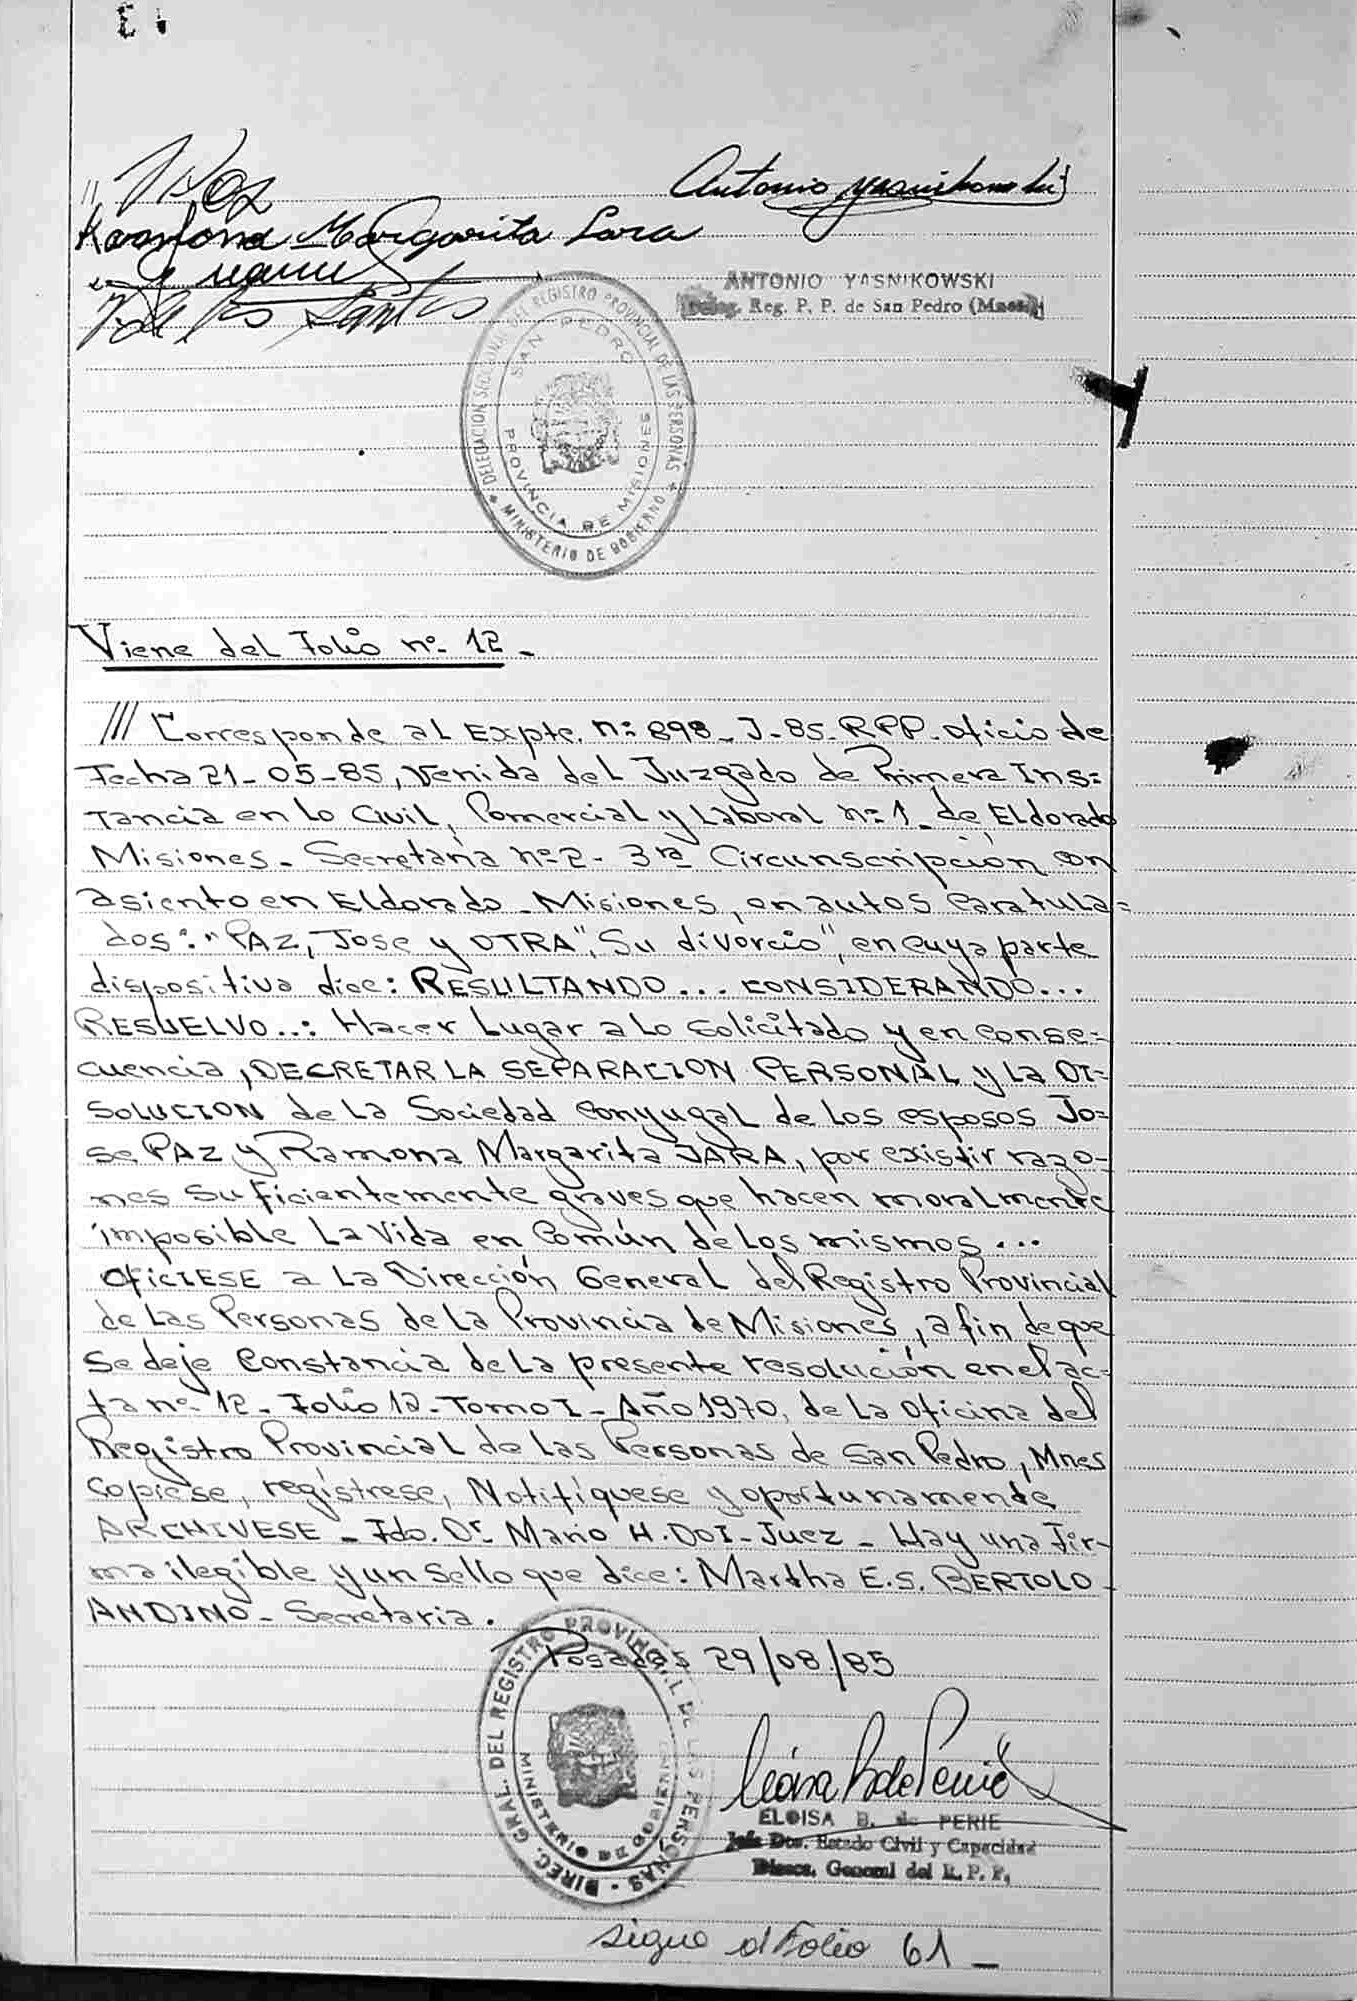 //
Antonio Yasnikowski
Ramona Margarita Jara
Santos
ANTONIO YASNIKOWSKI
Deleg. Reg. P. P. de San Pedro (Mnes.)
DELEGACION SECCIONAL DEL REGISTRO PROVINCIAL DE LAS PERSONAS
MINISTERIO DE GOBIERNO
SAN PEDRO
PROVINCIA DE MISIONES
Viene del Folio nº- 12_
/// Corresponde al Expte. nº 898_J-85-RPP-oficio de
Fecha 21-05-85, Venida del Juzgado de Primera Ins=
tancia en lo Civil, Comercial y Laboral nº1_ de Eldorado
Misiones_ Secretaria nº2- 3ra Circunscripción con
asiento en Eldorado_Misiones, en autos Caratula=
dos: "PAZ, Jose y OTRA", Su divorcio", en cuya parte
dispositiva dice: RESULTANDO... CONSIDERANDO...
RESUELVO..: Hacer Lugar a lo solicitado y en conse=
cuencia, DECRETAR LA SEPARACION PERSONAL y la DI=
SOLUCION de la Sociedad Conyugal de los esposos Jo=
se PAZ y Ramona Margarita JARA, por existir razo-
nes suficientemente graves que hacen moralmente
imposible la Vida en Común de los mismos...
OFICIESE a la Dirección General del Registro Provincial
de Las Personas de la Provincia de Misiones, a fin de que
se deje Constancia de la presente resolución en el ac-
ta nº- 12_ Folio 12-Tomo I_ Año 1970, de la oficina del
Registro Provincial de las Personas de San Pedro, Mnes
Copiese, regístrese, Notifíquese y oportunamente
ARCHIVESE_Fdo. Dr Mario H. DOI-Juez_ Hay una Fir-
ma ilegible y un sello que dice: Martha E.S. BERTOLO
ANDINO_ Secretaria.
Posadas 29/08/85
DIREC. GRAL. DEL REGISTRO PROVINCIAL DE LAS PERSONAS
MINISTERIO DE GOBIERNO
ELOISA B. de PERIE
Jefe Dto. Estado Civil y Capacidad
Direcc. General del R. P. P.
sigue al Folio 61_